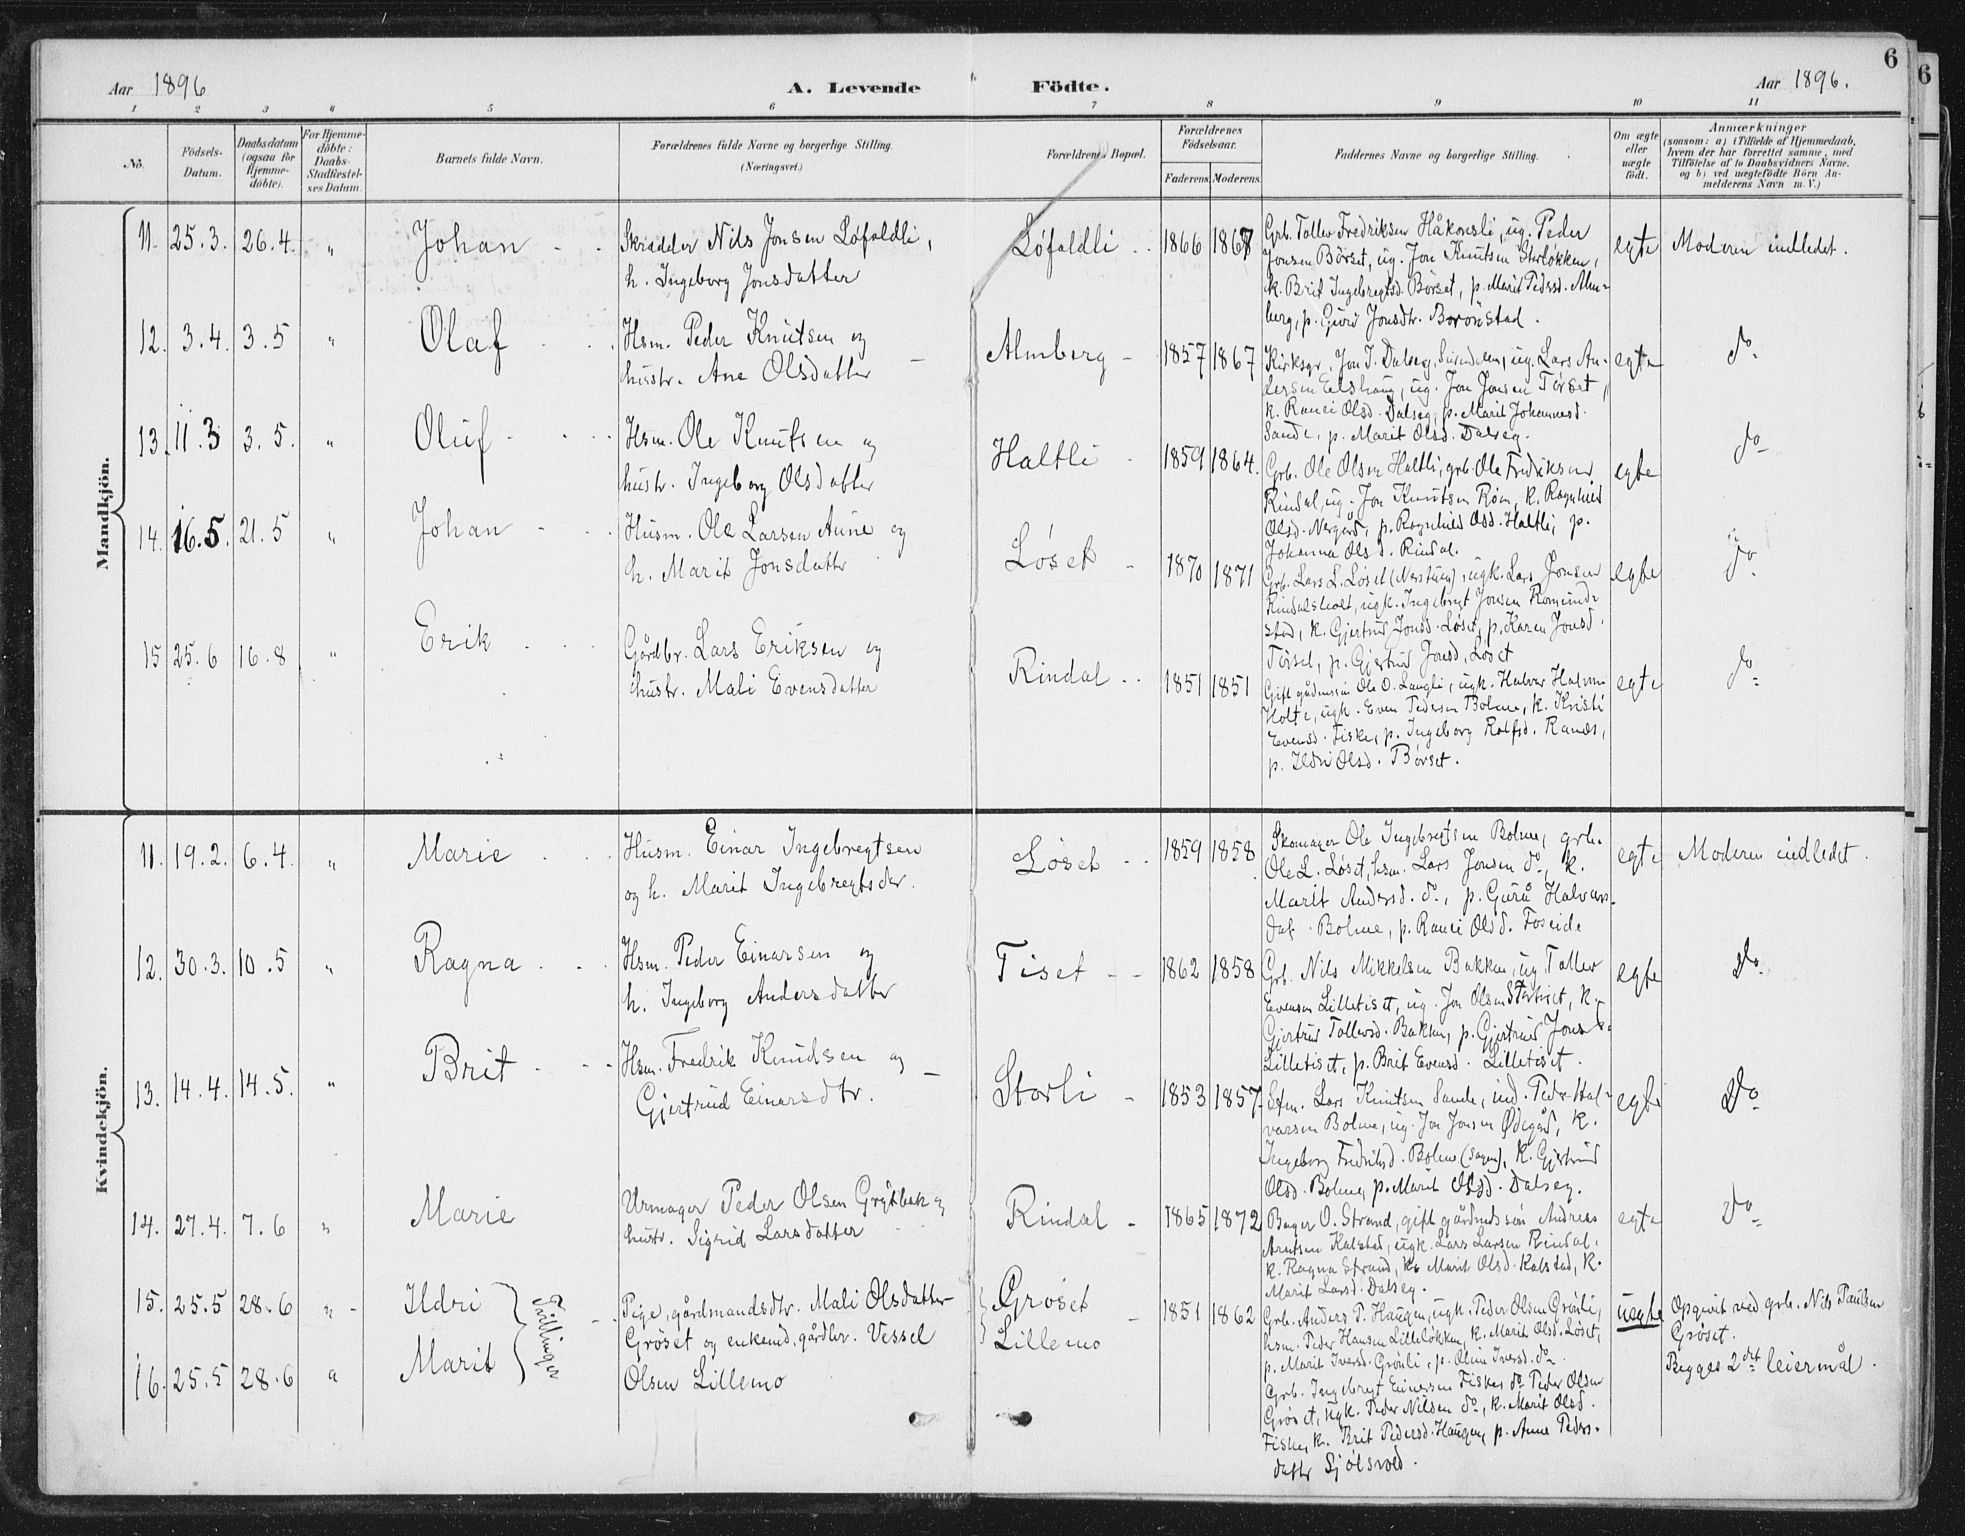 6
6
Aar 1896
A. Levende Födte.
Aar 1896.
1 2 3 4 5 6 7 8 9 10 11
No.
Födsels-Datum.
Daabsdatum (ogsaa for Hjemme-döbte).
For Hjemme-döbte: Daabs-Stadfæstel-ses Datum.
Barnets fulde Navn.
Forældrenes fulde Navne og borgerlige Stilling.
(Næringsvei.)
Forældrenes Bopæl.
Forældrenes Födselsaar.
Faderens. Moderens.
Faddernes Navne og borgerlige Stilling.
Om ægte eller uægte födt.
Anmærkninger
(saasom: a) i Tilfælde af Hjemmedaab,
hvem der har forrettet samme, med
Tilföielse af to Daabsvidners Navne,
og b) ved uægtefödte Börn An-
melderens Navn m. V.)
Mandkjön.
11. 25.3. 26.4. " Johan
Skrædder Nils Jonsen Løfaldli,
h. Ingeborg Jonsdatter
Løfaldli 1866 1867
Grb. Tollev Fredriksen Håkonsli, ug. Peder
Jonsen Børset, ug. Jon Knutsen Storløkken,
k. Brit Ingebregtsd. Børset, p. Marit Pedersd. Alm-
berg, p. Guri Jonsdtr. Boronstad.
egte Moderen indledet.
12. 3.4. 3.5 " Olaf
Hsm. Peder Knutsen og
hustr. Ane Olsdatter
Almberg 1857 1867
Kirksgr. Jon J. Dalseg, Surendalen, ug. Lars An-
dersen Elshaug, ug. Jon Jonsen Tørset,
k. Ranei Olsd. Dalseg, p. Marit Johannesd.
Sande, p. Marit Olsd. Dalseg.
egte do
13. 11.3 3.5. " Oluf
Hsm. Ole Knutsen og
hustr. Ingeborg Olsdatter
Haltli 1859 1864.
Grb. Ole Olsen Haltli, grb. Ole Fredriksen
Rindal, ug. Jon Knutsen Røen, k. Ragnhild
Olsd. Nergård, p. Ragnhild Olsd. Haltli, p.
Johanna Olsd. Rindal.
egte do
14. 16.5. 21.5 " Johan
Husm. Ole Larsen Aune og
h. Marit Jonsdatter
Løset 1870 1871
Grb. Lars L. Løset (Nerstuen), ugk. Lars Jonsen
Rindalsholt, ugk. Ingebregt Jonsen Romund-
stad, k. Gjertrud Jonsd. Løset, p. Karen Jonsd.
Tørset, p. Gjertrud Jonsd. Løset
egte do
15 25.6 16.8 " Erik
Gårdbr. Lars Eriksen og
hustr. Mali Evensdatter
Rindal 1851 1851
Gift gårdmssøn Ole O. Langli, ugk. Halvor Halvorsen
Holte, ugk. Even Pedersen Bolme, k. Kristi
Evensd. Fiske, p. Ingeborg Rolfsd. Ranes,
p. Ildri Olsd. Børset.
egte do
Kvindekjön.
11. 19.2. 6.4. " Marie
Husm. Einar Ingebregtsen
og h. Marit Ingebregtsdtr.
Løset 1859 1858
Skomager Ole Ingebregtsen Bolme, grb.
Ole L. Løset, hsm. Lars Jonsen do, k.
Marit Andersd. do, p. Gurå Halvors-
dat. Bolme, p. Ranei Olsd. Foseide
egte Moderen indledet.
12. 30.3. 10.5 " Ragna
Hsm. Peder Einarsen og
h. Ingeborg Andersdatter
Tiset 1862 1858
Grb. Nils Mikkelsen Bakken, ug. Tollev
Evensen Lilletiset, ug. Jon Olsen Stortiset, k.
Gjertrud Tollevsd. Bakken, p. Gjertrud Jonsd.
Lilletiset, p. Brit Evensd. Lilletiset.
egte do
13. 14.4. 14.5. " Brit
Hsm. Fredrik Knudsen og
Gjertrud Einarsdtr.
Storli 1853 1857
Stm. Lars Knutsen Sande, ind. Peder Hal-
varsen Bolme, ug. Jon Jonsen Ødegård, k.
Ingeborg Fredriksd. Bolme (sagen), k. Gjertrud
Olsd. Bolme, p. Marit Olsd. Dalseg.
egte do
14. 27.4. 7.6 " Marie
Urmager Peder Olsen Grytbak og
hustr. Sigrid Larsdatter
Rindal 1865 1872
Bager O. Strand, gift gårdmdssøn Andreas
Arntsen Kalstad, ugk. Lars Larsen Rindal.
k. Ragna Strand, k. Marit Olsd. Kalstad, k.
Marit Larsd. Dalseg.
egte do
15. 25.5 28.6 " Ildri
16. 25.5 28.6 " Marit
Tvillinger
Pige, gårdmandsdtr. Mali Olsdatter
Grøset og enkemd. gårdbr. Vessel
Olsen Lillemo
Grøset
Lillemo
1851 1862
Grb. Anders P. Haugen, ugk. Peder Olsen Grønli,
hsm. Peder Hansen Lilleløkken, k. Marit Olsd. Løset,
p. Marit Iversd. Grønli, p. Oline Iversd. do.
Grb. Ingebregt Einersen Fiske, do Peder Olsen
Grøset, ugk. Peder Nilsen do, k. Marit Olsd.
Fiske, k. Brit Pedersd. Haugen, p. Anne Peders-
datter Sjølsvold.
uegte Opgivet ved grb. Nils Paulsen
Grøset.
Begges 2det leiermål.